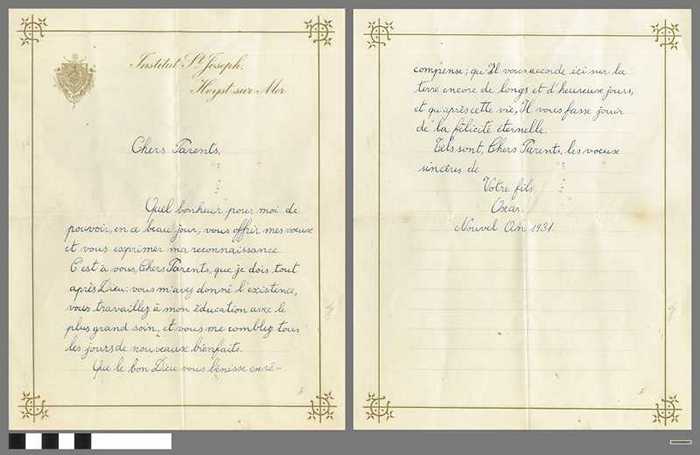 Institut St Joseph.
Heyst-sur-Mer
Chers Parents,
Quel bonheur pour moi de
pouvoir, en ce beau jour, vous offrir mes voeux
et vous exprimer ma reconnaissance.
C'est à vous, Chers Parents, que je dois tout
après Dieu: vous m'avez donné l'existence,
vous travaillez à mon éducation avec le
plus grand soin, et vous me comblez tous
les jours de nouveaux bienfaits.
Que le bon Dieu vous bénisse en ré-
compense; qu'Il vous accorde ici sur la
terre encore de longs et d'heureux jours,
et qu'après cette vie, Il vous fasse jouir
de la félicité éternelle.
Tels sont, Chers Parents, les voeux
sincères de
Votre fils
Oscar.
Nouvel An 1931.